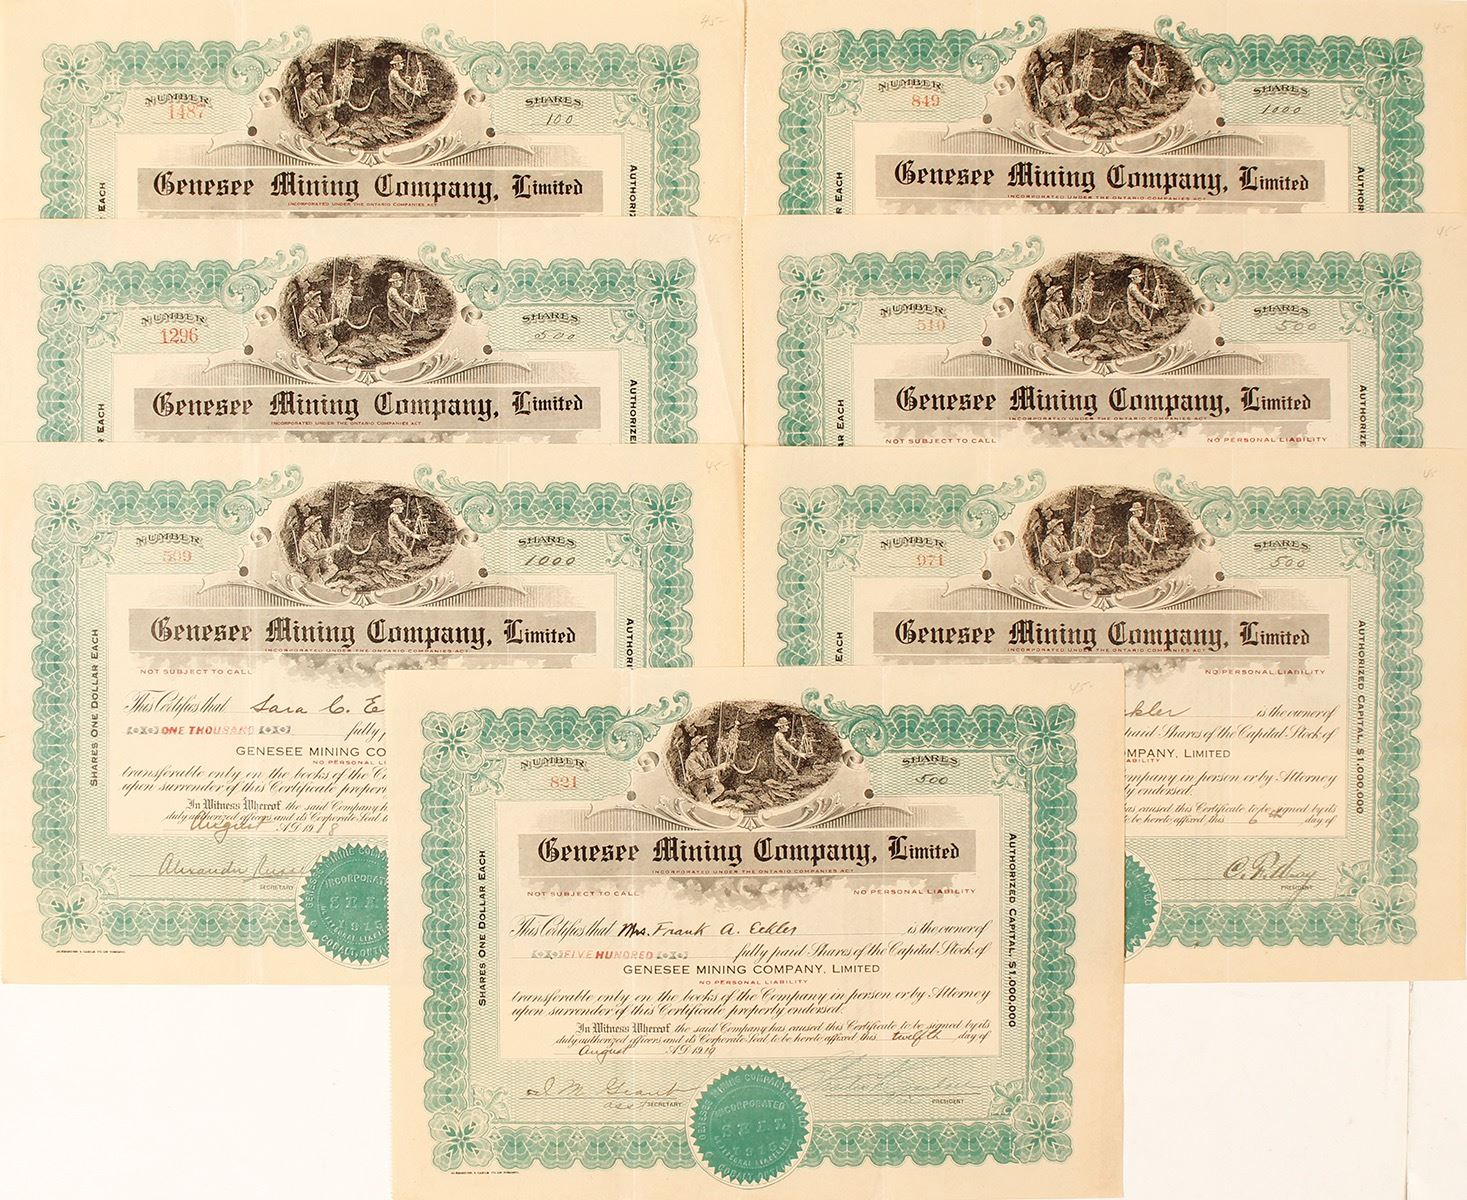 45-
NUMBER
1487
SHARES
100
Genesee Mining Company, Limited
INCORPORATED UNDER THE ONTARIO COMPANIES ACT
R EACH
AUTHORIZE
45
NUMBER
849
SHARES
1000
Genesee Mining Company, Limited
INCORPORATED UNDER THE ONTARIO COMPANIES ACT
R EACH
AUTHORIZ
45-
NUMBER
1296
SHARES
500
Genesee Mining Company, Limited
INCORPORATED UNDER THE ONTARIO COMPANIES ACT
R EACH
AUTHORIZE
45-
NUMBER
510
SHARES
500
Genesee Mining Company, Limited
INCORPORATED UNDER THE ONTARIO COMPANIES ACT
NOT SUBJECT TO CALL NO PERSONAL LIABILITY
AR EACH
AUTHORIZE
45-
NUMBER
599
SHARES
1000
Genesee Mining Company, Limited
INCORPORATED UNDER THE ONTARIO COMPANIES ACT
NOT SUBJECT TO CALL
This Certifies that Sara C. E
ONE THOUSAND fully p
GENESEE MINING CO
NO PERSONAL LI
transferable only on the books of the C
upon surrender of this Certificate proper
In Witness Whereof the said Company h
duly authorized officers and its Corporate Seal t
August A.D. 1918
SECRETARY
SHARES ONE DOLLAR EACH
AUTHORI
45
NUMBER
971
SHARES
500
Genesee Mining Company, Limited
INCORPORATED UNDER THE ONTARIO COMPANIES ACT
NO PERSONAL LIABILITY
ckler is the owner of
paid Shares of the Capital Stock of
OMPANY, LIMITED
ABILITY
mpany in person or by Attorney
ly endorsed.
as caused this Certificate to be signed by its
be hereto affixed this 6th day of
PRESIDENT
R EACH
AUTHORIZED CAPITAL, $1,000,000
45-
NUMBER
821
SHARES
500
Genesee Mining Company, Limited
INCORPORATED UNDER THE ONTARIO COMPANIES ACT
NOT SUBJECT TO CALL NO PERSONAL LIABILITY
This Certifies that Mrs. Frank A. Eckler is the owner of
FIVE HUNDRED fully paid Shares of the Capital Stock of
GENESEE MINING COMPANY, LIMITED
NO PERSONAL LIABILITY
transferable only on the books of the Company in person or by Attorney
upon surrender of this Certificate properly endorsed.
In Witness Whereof the said Company has caused this Certificate to be signed by its
duly authorized officers and its Corporate Seal to be hereto affixed this twelfth day of
August A.D. 1919
Asst SECRETARY
PRESIDENT
SHARES ONE DOLLAR EACH
AUTHORIZED CAPITAL, $1,000,000
GENESEE MINING COMPANY
INCORPORATED
SEAL
COBALT